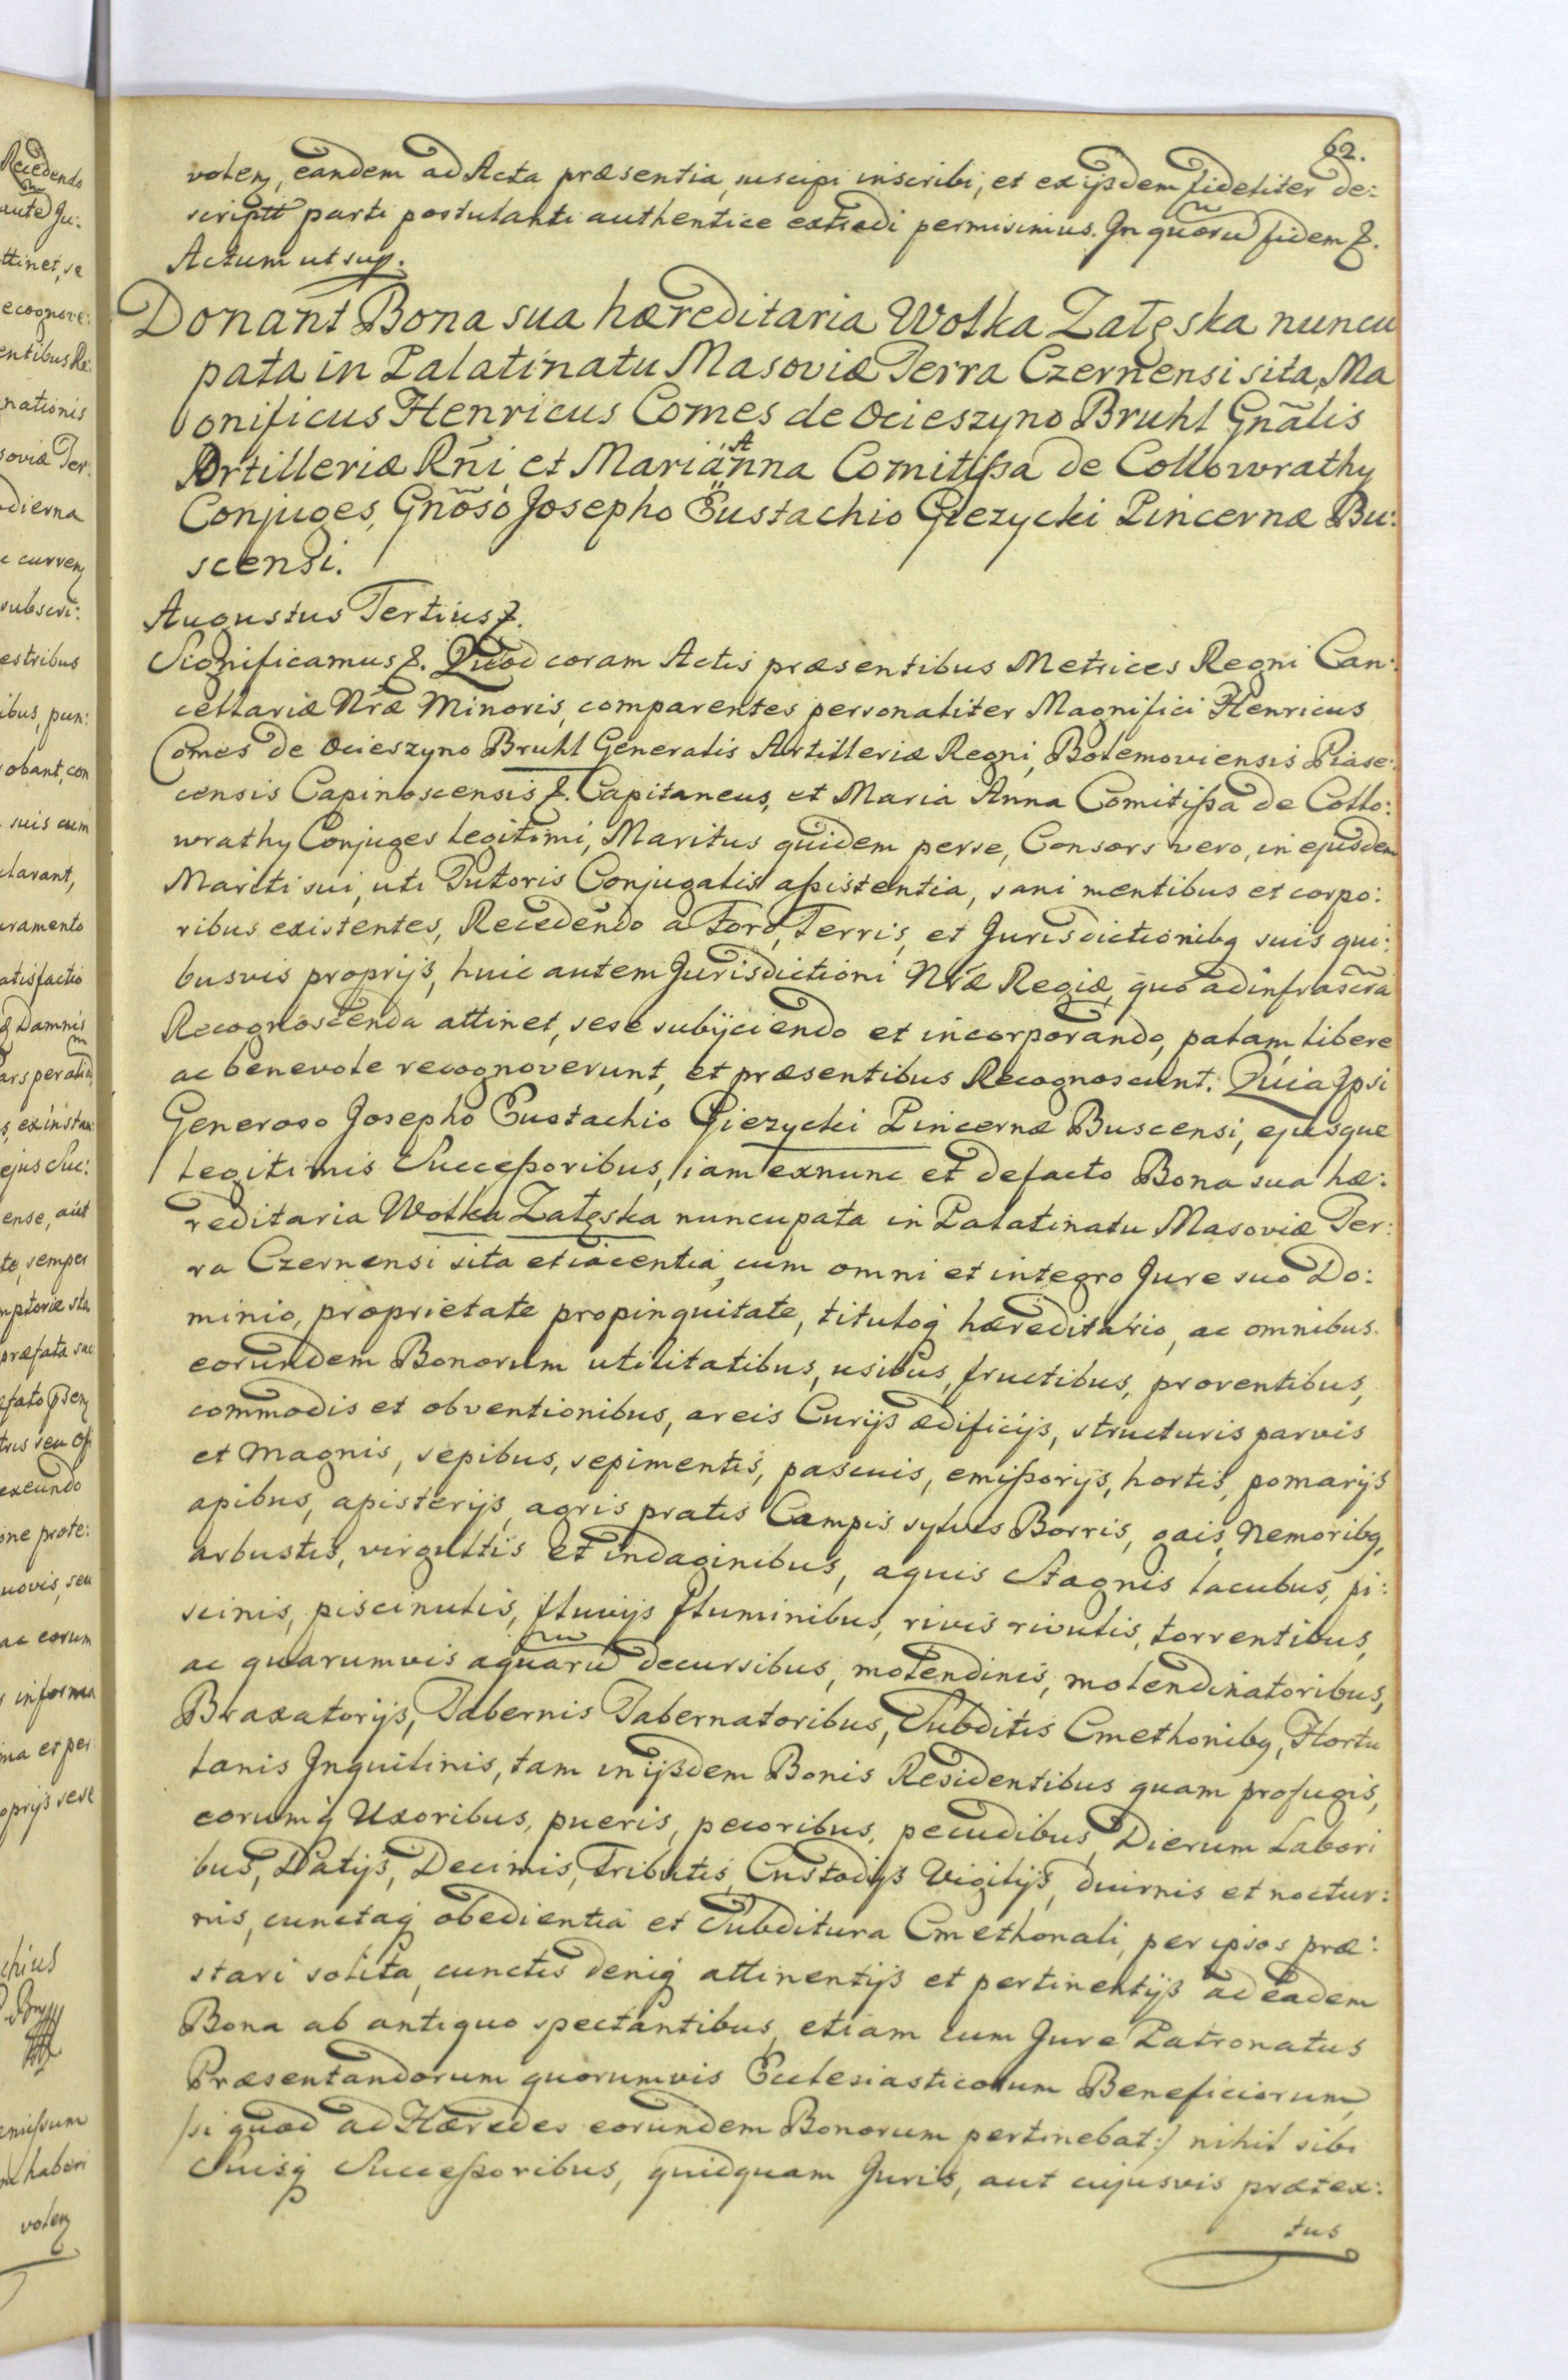 62.
volen, eandem ad Acta præsentia, suscipi inscribi, et ex ijsdem fideliter de:
scriptt parti postulanti authentice extradi permisimus. In quoru fidem &.
Actum ut sup.
Donant Bona sua hæreditaria Wolka Załęska nuncu
pata in Palatinatu Masoviæ Terra Czernensi sita, Ma
gnificus Henricus Comes de Ocieszyno Bruhl Gnãlis
Artilleriæ Rñi, et Mariäñna Comitissa de Collowrathy
Conjuges, Gnõso Josepho Eustachio Giezycki Pincernæ Bu:
scensi.
Augustus Tertius &.
Significamus &. Quod coram Actis præsentibus Metrices Regni Can:
cellariæ Nræ Minoris, comparentes personaliter Magnifici Henricus
Comes de Ocieszyno Bruhl Generalis Artilleriæ Regni, Bolemoviensis Piase:
censis Capinoscensis &. Capitaneus, et Maria Anna Comitissa de Collo:
wrathy Conjuges legitimi, Maritus quidem perse, Consors vero, in ejusdem
Mariti sui, uti Tutoris Conjugalis assistentia, sani mentibus et corpo:
ribus existentes, Recedendo a Foro, Terris, et Jurisdictionibq suis qui:
busvis proprijs, huic autem Jurisdictioni Nræ Regiæ, quo ad infrascra
Recognoscenda attinet, sese subijciendo et incorporando, palam, libere
ac benevole recognoverunt, et præsentibus Recognoscunt. Quia Ipsi
Generoso Josepho Eustachio Giezycki Pincernæ Buscensi, ejusque
legitimis Successoribus, iam exnunc et defacto Bona sua hæ:
reditaria Wolka Załęska nuncupata in Palatinatu Masoviæ Ter:
ra Czernensi sita et iacentia, cum omni et integro Jure suo Do:
minio, proprietate propinquitate, tituloq hæreditario, ac omnibus
eorundem Bonorum utilitatibus, usibus, fructibus, proventibus,
commodis et obventionibus, areis Curijs ædificijs, structuris parvis
et magnis, sepibus, sepimentis, pascuis, emissorijs, hortis, pomarijs
apibus, apisterijs, agris pratis Campis sylvis Borris, gais, Nemoribq,
arbustis, virgultis et indaginibus, aquis Stagnis lacubus, pi:
scinis, piscinulis, fluvijs fluminibus, rivis rivulis, torrentibus,
ac quarumvis aquaru decursibus, molendinis, molendinatoribus,
Braxatorijs, Tabernis Tabernatoribus, Subditis Cmethonibq, Hortu
lanis Inquilinis, tam in ijsdem Bonis Residentibus quam profugis,
eorumq Uxoribus, pueris, pecoribus, pecudibus, Dierum Labori
bus, Datijs, Decimis, Tributis, Custodijs Vigilijs, diurnis et noctur:
nis, cunctaq obedientia et Subditura Cmethonali, per ipsos præ:
stari solita, cunctis deniq attinentijs et pertinentijs ad eadem
Bona ab antiquo spectantibus, etiam cum Jure Patronatus
Præsentandorum quorumvis Ecclesiasticorum Beneficiorum,
/si quod ad Hæredes eorundem Bonorum pertinebat:/ nihil sibi
Suisq Successoribus, quidquam Juris, aut cujusvis prætex:
tus